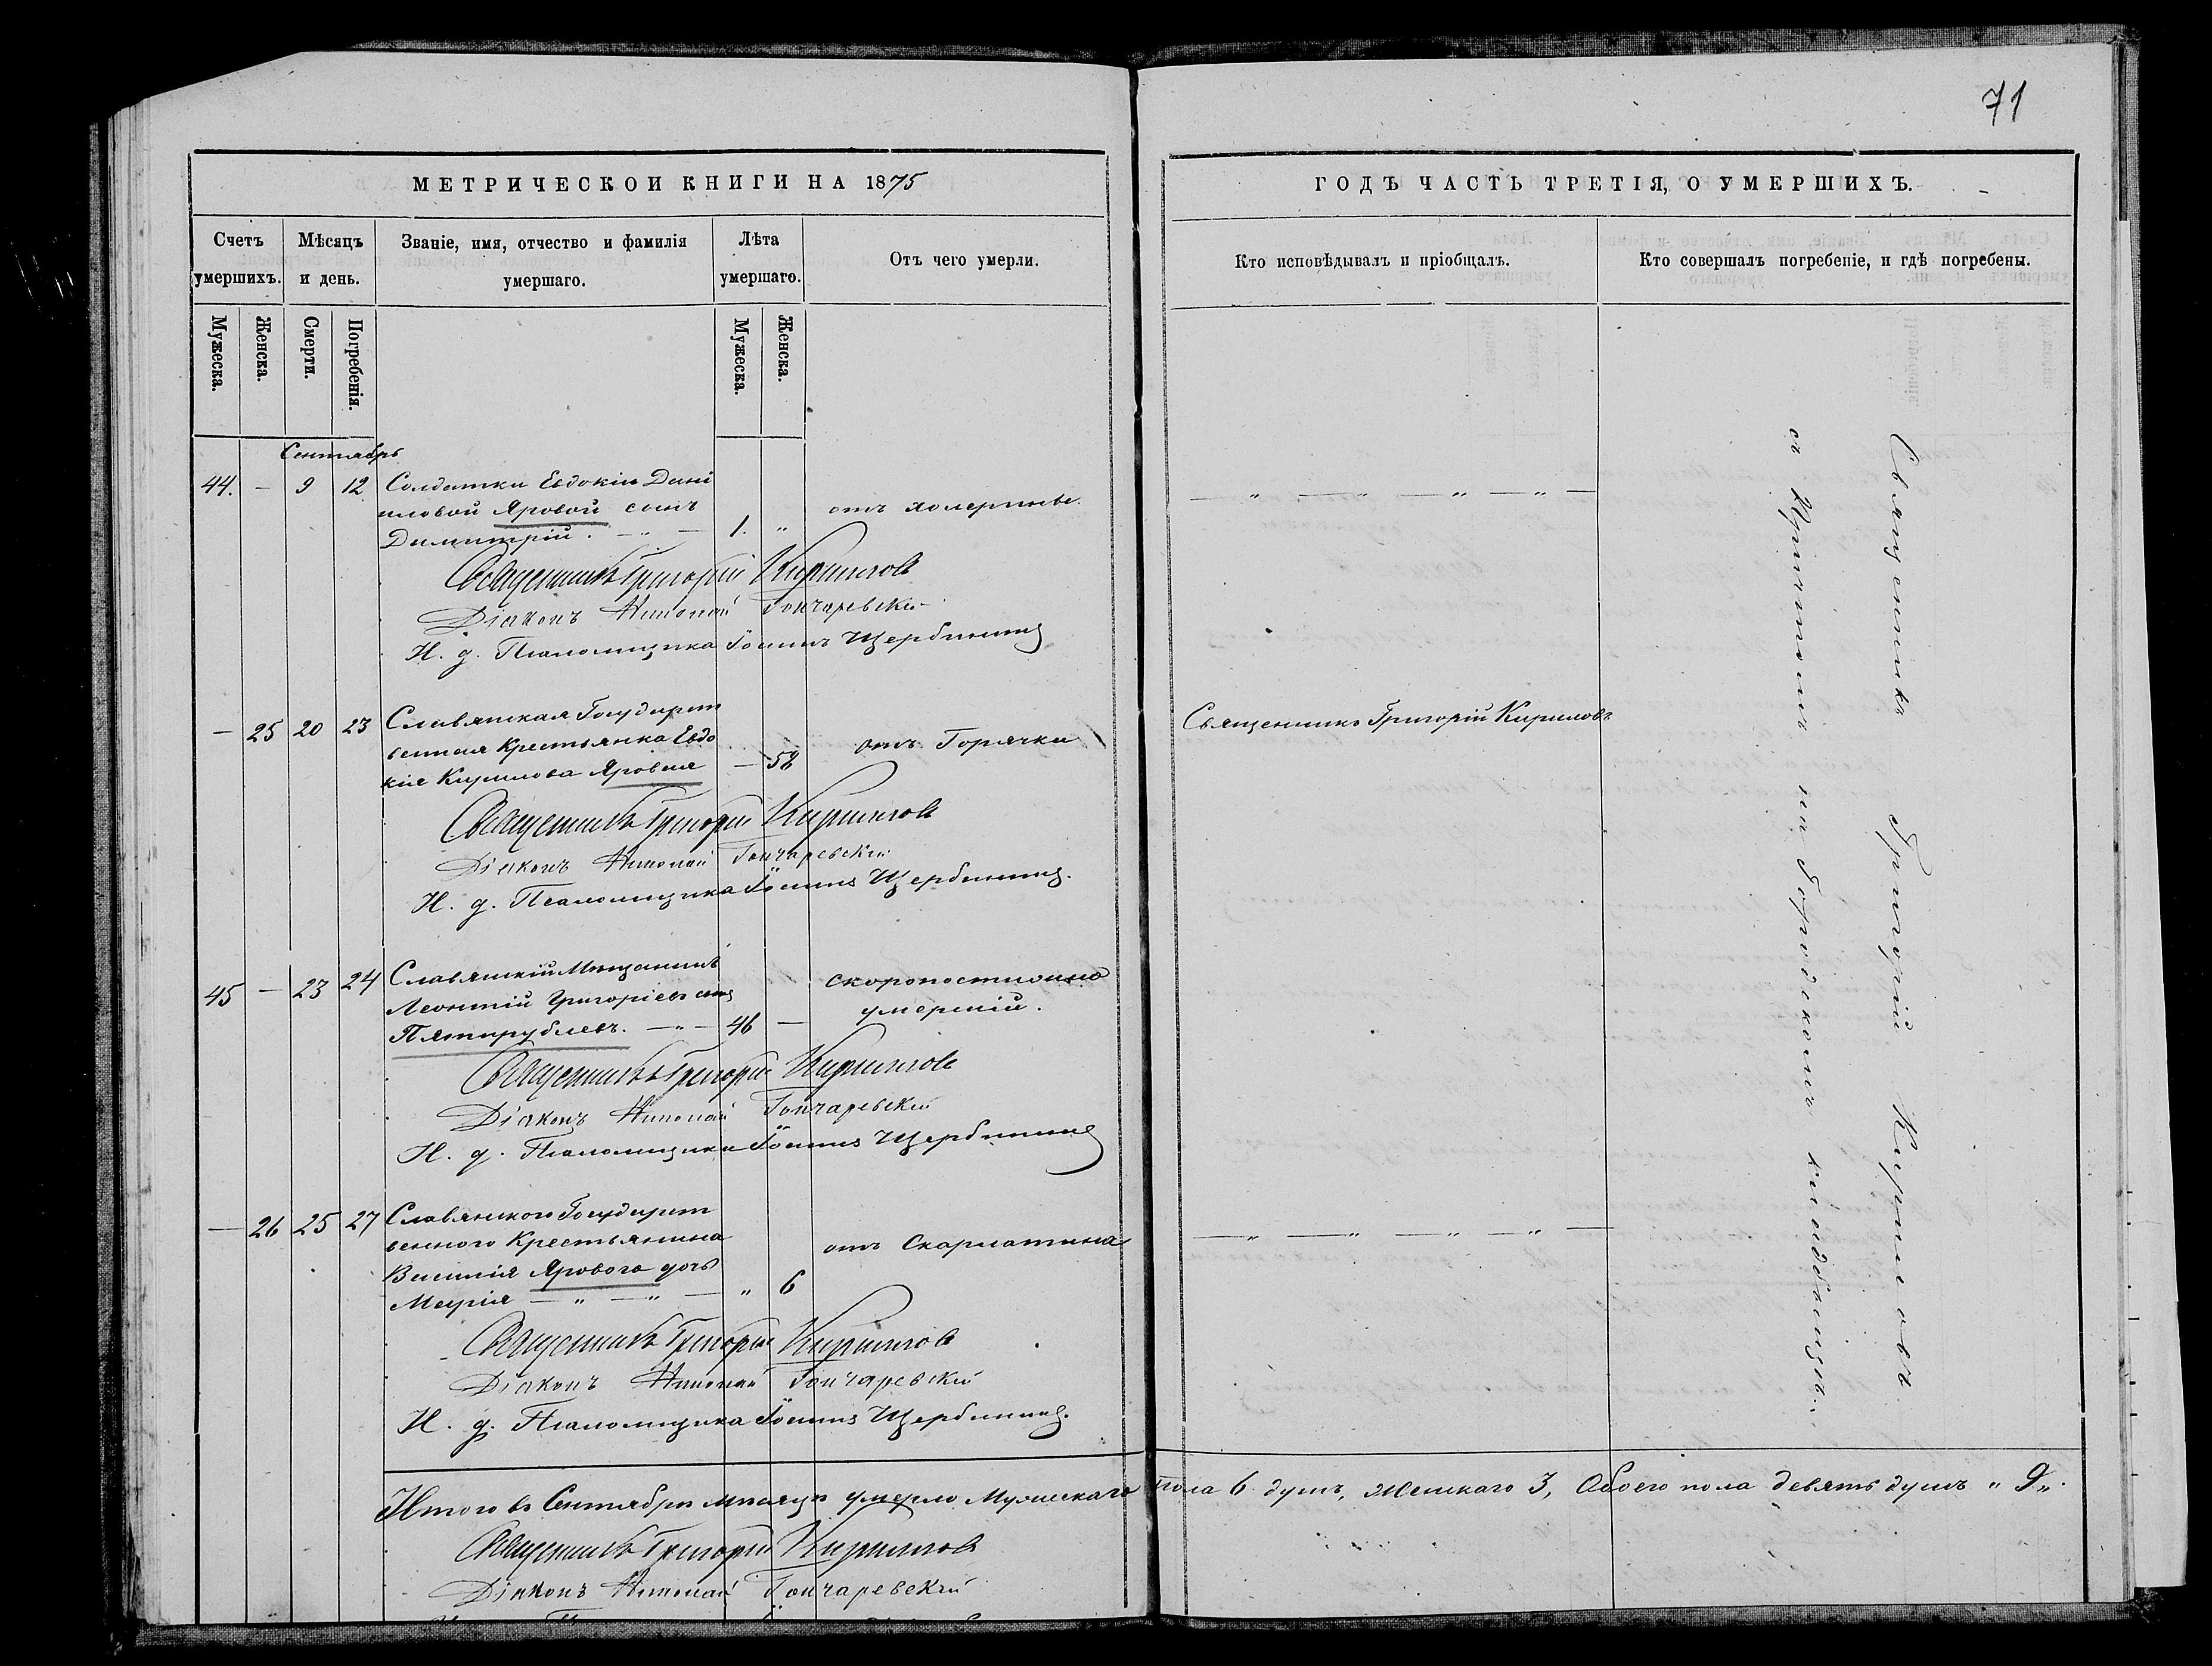 71
МЕТРИЧЕСКОЙ КНИГИ НА 1875
ГОДЪ ЧАСТЬ ТРЕТІЯ, О УМЕРШИХЪ.
Счетъ умершихъ.
Мѣсяцъ и день.
Званіе, имя, отчество и фамилія умершаго.
Лѣта умершаго.
Отъ чего умерли.
Кто исповѣдывалъ и пріобщалъ.
Кто совершалъ погребеніе, и гдѣ погребены.
Мужеска.
Женска.
Смерти.
Погребенія.
Мужеска.
Женска.
Сентябрь
44. — 9 12 Солдатки Евдокіи Дані
иловой Яровой сынъ
Димитрій. — „ — 1. „
отъ холерины
Священникъ Григорій Кириловъ
Діаконъ Николай Гончаревскій
И. д. Псаломщика Іоаннъ Щербининъ
— 25 20 23 Славянская Государст
венная Крестьянка Евдо
кія Кирилова Яровая — 58
отъ Горячки
Священникъ Григорій Кириловъ
Священникъ Григорій Кириловъ
Діаконъ Николай Гончаревскій
И. д. Псаломщика Іоаннъ Щербининъ.
45 — 23 24 Славянскій Мѣщанинъ
Леонтій Григорьевъ сынъ
Пятирублевъ. — „ — 46 —
скоропостижно
умершій.
Священникъ Григорій Кириловъ
Діаконъ Николай Гончаревскій
И. д. Псаломщика Іоаннъ Щербининъ
— 26 25 27 Славянского Государст
венного Крестьянина
Василія Ярового дочь
Марія — „ — „ — „ 6
отъ Скарлатины
Священникъ Григорій Кириловъ
Діаконъ Николай Гончаревскій
И. д. Псаломщика Іоаннъ Щербининъ.
Священникъ Григорій Кириловъ
на Городскомъ кладбищѣ.
Итого въ Сентябрѣ мѣсяцѣ умерло Мужескаго пола 6 душъ, Женскаго 3, Обоего пола девять душъ „ 9 „.
Священникъ Григорій Кириловъ
Діаконъ Николай Гончаревскій